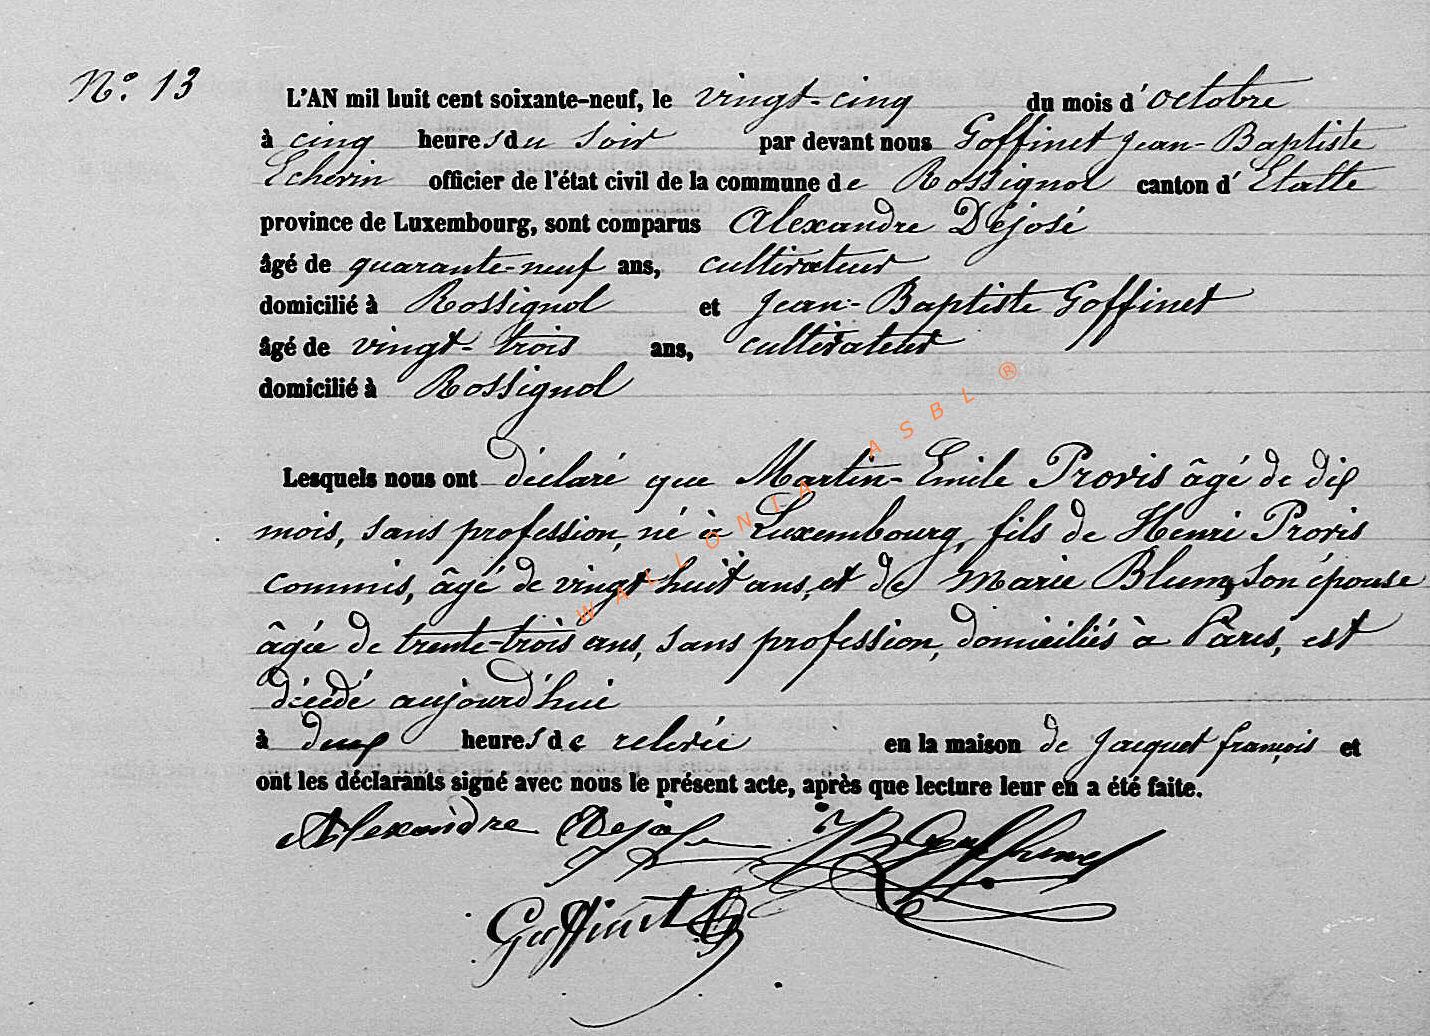 N.º 13
L'AN mil huit cent soixante-neuf, le vingt-cinq du mois d'octobre
à cinq heures du soir par devant nous Goffinet Jean-Baptiste
Echevin officier de l'état civil de la commune de Rossignol canton d'Etalle
province de Luxembourg, sont comparus Alexandre Déjosé
âgé de quarante-neuf ans, cultivateur
domicilié à Rossignol et Jean-Baptiste Goffinet
âgé de vingt-trois ans, cultivateur
domicilié à Rossignol
Lesquels nous ont déclaré que Martin-Emile Provis âgé de dix
mois, sans profession, né à Luxembourg, fils de Henri Provis
commis, âgé de vingt huit ans, et de Marie Blum, son épouse
âgée de trente-trois ans, sans profession, domiciliés à Paris, est
décédé aujourd'hui
à deux heures de relevée en la maison de Jacquet françois et
ont les déclarants signé avec nous le présent acte, après que lecture leur en a été faite.
Alexandre Dejosé JB Goffinet
Goffinet
WALLONIA ASBL ®